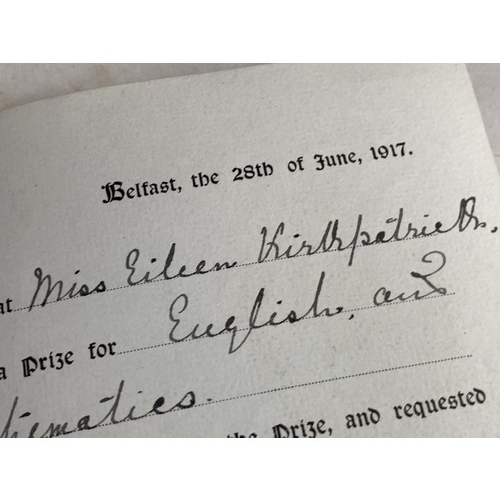 Belfast, the 28th of June, 1917.
at Miss Eileen Kirkpatrick,
a Prize for English, and
hematics.
the Prize, and requested